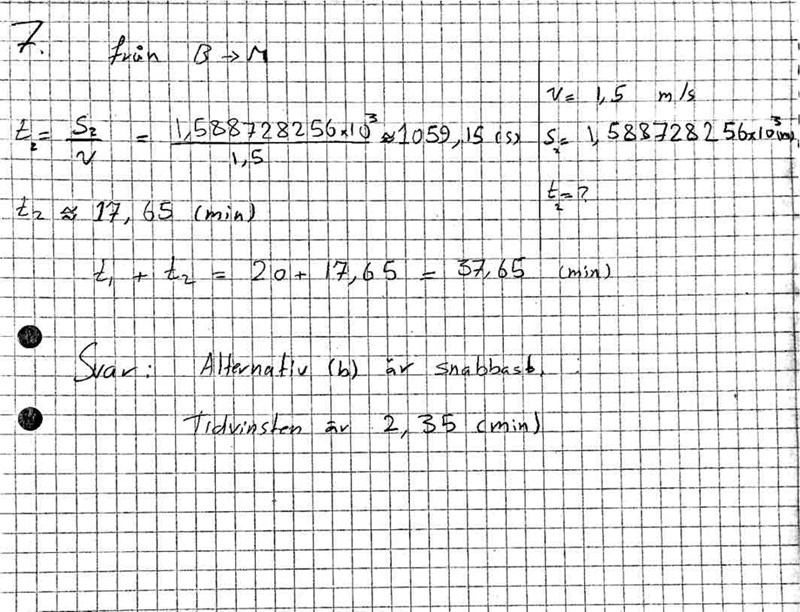 7.
från B → M
v = 1,5 m/s
t₂ = S₂/v = 1,588728256×10³/1,5 ≈ 1059,15 (s)
S₂ = 1,588728256×10³(m)
t₂ = ?
t₂ ≈ 17,65 (min)
t₁ + t₂ = 20 + 17,65 = 37,65 (min)
Svar: Alternativ (b) är snabbast.
Tidvinsten är 2,35 (min)